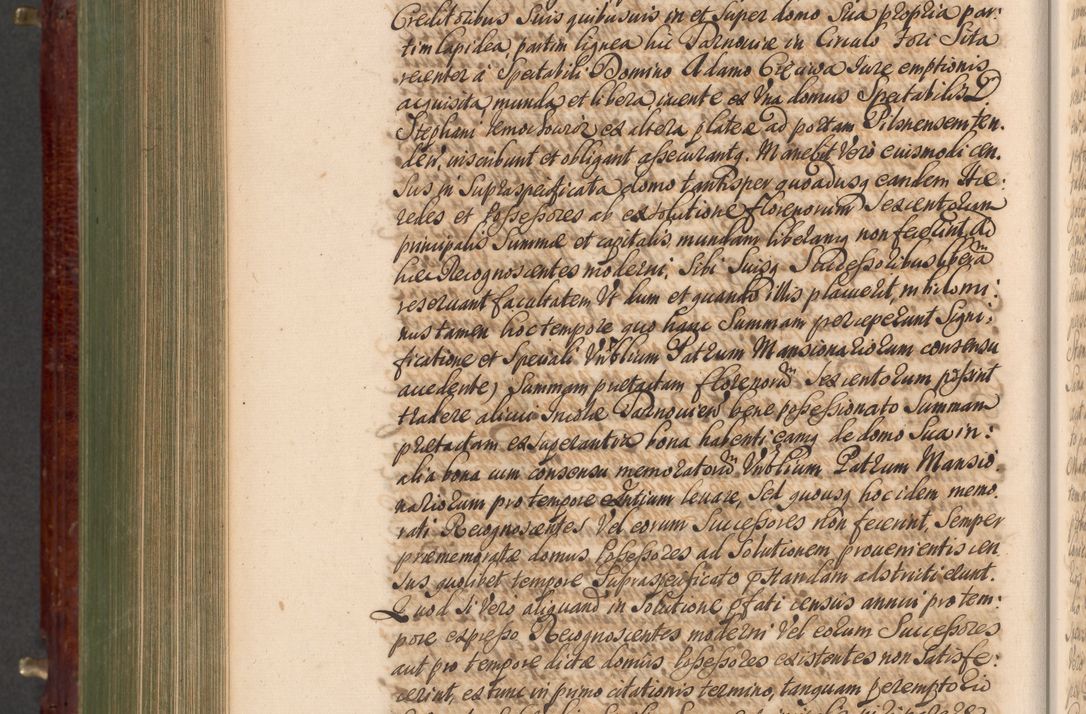 Creditoribus Suis quibusuis in et Super domo Sua propria par,
tim lapidea partim lignea hic Tarnouiæ in Circulo Fori Sita
recenter à Spectabili Domino Adamo Jure emptionis
acquisita, munda et libera, inter et Una domus Spectabilis D
Stephani ex altera plateæ ad portam Pilsnensem ten,
den: inscribunt et obligant assecurantq. Manebit Vero euismodi cen,
sus in Supraspecificata domo tantisper quoadusq eandem Hæ,
redes et Possessores ab exsolutione florenorum Sexcentorum
principalis Summæ et capitalis mundam liberamq non fecerint. Ad
hæc Recognoscentes moderni, Sibi Suisq Successoribus liberam
reseruant facultatem Ut dum et quando illis placuerit, nihilomi:
nus tamen hoc tempore quo hanc Summam perceperunt Signi,
ficatione et Speciali Vnblium Patrum Mansionariorum consensu
accedente, Summam prætactam florenorum Sexcentorum possint
tradere alicui Incolæ Tarnouien bene possessionato Summam
prætactam exsuperantia bona habenti eamq de domo Sua in:
alia bona cum consensu memoratorum Vnblium Patrum Mansio
nariorum pro tempore leuare, Sed quousq hoc idem memo,
rati Recognoscentes Vel eorum Successores non fecerint, Semper
præmemoratæ domus Possessores ad Solutionem prouenientis cen
sus quolibet tempore Supraspecificato præstandam adstricti erunt.
Quod Si Vero aliquando in Solutione præfati census annui pro tem:
pore expresso Recognoscentes moderni Vel eorum Successores
aut pro tempore dictæ domus Possessores existentes non Satisfe:
cerint, ex tunc in primo citationis termino, tanquam peremptorio